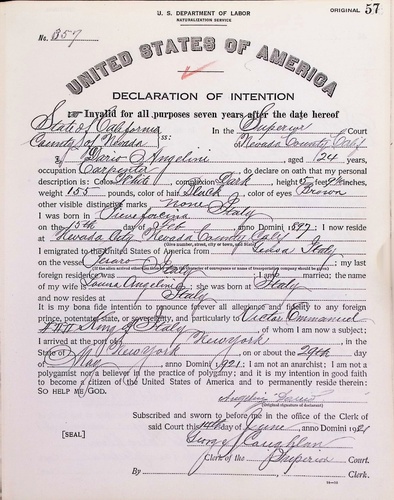 U. S. DEPARTMENT OF LABOR
NATURALIZATION SERVICE
ORIGINAL 57
No. 357
UNITED STATES OF AMERICA
DECLARATION OF INTENTION
Invalid for all purposes seven years after the date hereof
State of California
County of Nevada ss: In the Superior Court
Nevada County Calif
I, Dario Angelini, aged 24 years,
occupation Carpenter, do declare on oath that my personal
description is: Color White, complexion Dark, height 5 feet inches,
weight 155 pounds, color of hair Black, color of eyes Brown
other visible distinctive marks none
I was born in Italy
on the 15th day of Feb, anno Domini 1897; I now reside
at Nevada City Nevada County Calif
I emigrated to the United States of America from Italy
on the vessel; my last
foreign residence was Italy; I am married; the name
of my wife is Angelini; she was born at Italy
and now resides at Italy
It is my bona fide intention to renounce forever all allegiance and fidelity to any foreign
prince, potentate, state, or sovereignty, and particularly to Victor Emmanuel
King of Italy, of whom I am now a subject;
I arrived at the port of New York, in the
State of New York, on or about the 29th day
of May, anno Domini 1921; I am not an anarchist; I am not a
polygamist nor a believer in the practice of polygamy; and it is my intention in good faith
to become a citizen of the United States of America and to permanently reside therein:
SO HELP ME GOD.
Angelini Dario
(Original signature of declarant)
Subscribed and sworn to before me in the office of the Clerk of
said Court this 14th day of June anno Domini 1921
[SEAL]
George Coughlan
Clerk of the Superior Court.
By, Clerk.